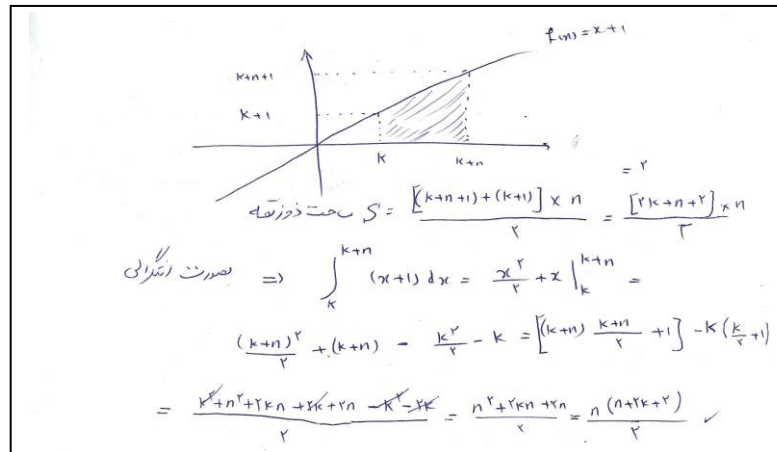 f(x) = x+1
k+n+1
k+1
k
k+n
= ۲
مساحت ذوزنقه S = [(k+n+1)+(k+1)] × n / ۲ = [۲k+n+۲] × n / ۲
بصورت انتگرالی ⇒ ∫_k^{k+n} (x+1) dx = x^۲/۲ + x |_k^{k+n} =
(k+n)^۲/۲ + (k+n) - k^۲/۲ - k = [(k+n) (k+n)/۲ + 1] - k(k/۲ + 1)
= k^۲+n^۲+۲kn+۲k+۲n-k^۲-۲k / ۲ = n^۲+۲kn+۲n / ۲ = n(n+۲k+۲) / ۲ ✓